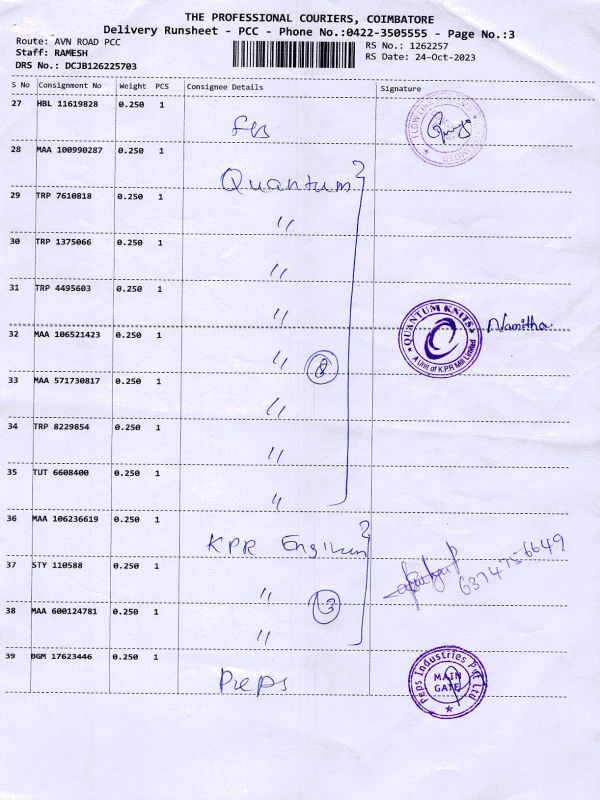 THE PROFESSIONAL COURIERS, COIMBATORE
Delivery Runsheet - PCC - Phone No.:0422-3505555 - Page No.:3
Route: AVN ROAD PCC
RS No.: 1262257
Staff: RAMESH
RS Date: 24-Oct-2023
DRS No.: DCJB126225703
S No Consignment No Weight PCS Consignee Details Signature
27 HBL 11619828 0.250 1
28 MAA 100990287 0.250 1
Quantum
29 TRP 7610818 0.250 1
"
30 TRP 1375066 0.250 1
"
31 TRP 4495603 0.250 1
"
QUANTUM KNITS
A Unit of K.P.R Mill Limited
Namitha
32 MAA 106521423 0.250 1
" 8
33 MAA 571730817 0.250 1
"
34 TRP 8229854 0.250 1
"
35 TUT 6608400 0.250 1
"
36 MAA 106236619 0.250 1
KPR
37 STY 110588 0.250 1
6374756649
" 3
38 MAA 600124781 0.250 1
"
39 BGM 17623446 0.250 1
Peps
Peps Industries Pvt Ltd
MAIN
GATE